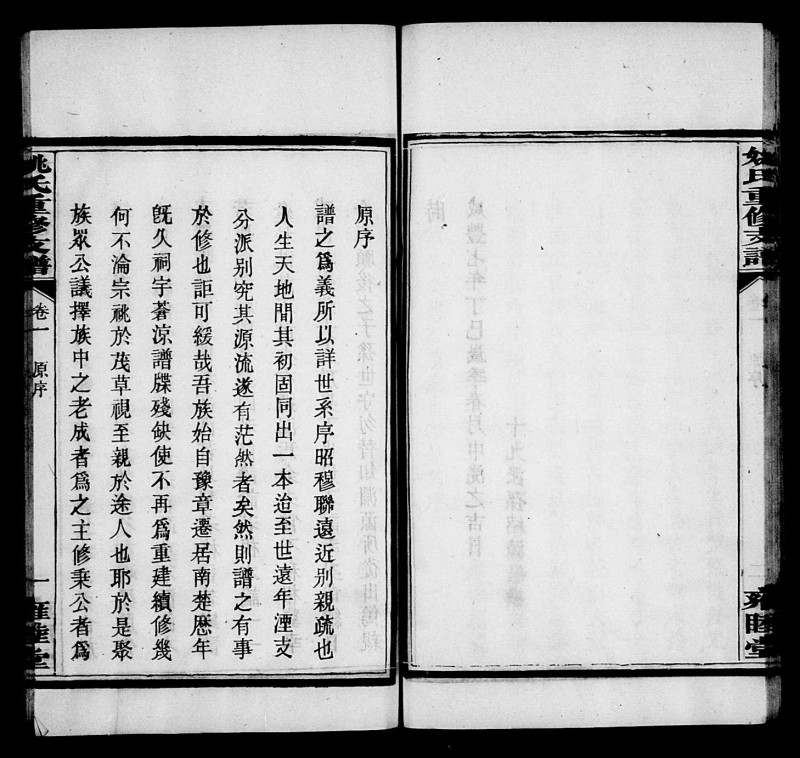 姚氏重修支譜
雍睦堂
原序
譜之爲義所以詳世系序昭穆聯遠近別親疏也
人生天地間其初固同出一本迨至世遠年湮支
分派别究其源流遂有茫然者矣然則譜之有事
於修也詎可緩哉吾族始自豫章遷居南楚厯年
旣久祠宇蒼涼譜牒殘缺使不再爲重建續修幾
何不淪宗祧於茂草視至親於途人也耶於是聚
族眾公議擇族中之老成者爲之主修秉公者爲
姚氏重修支譜
卷一
原序
一
雍睦堂